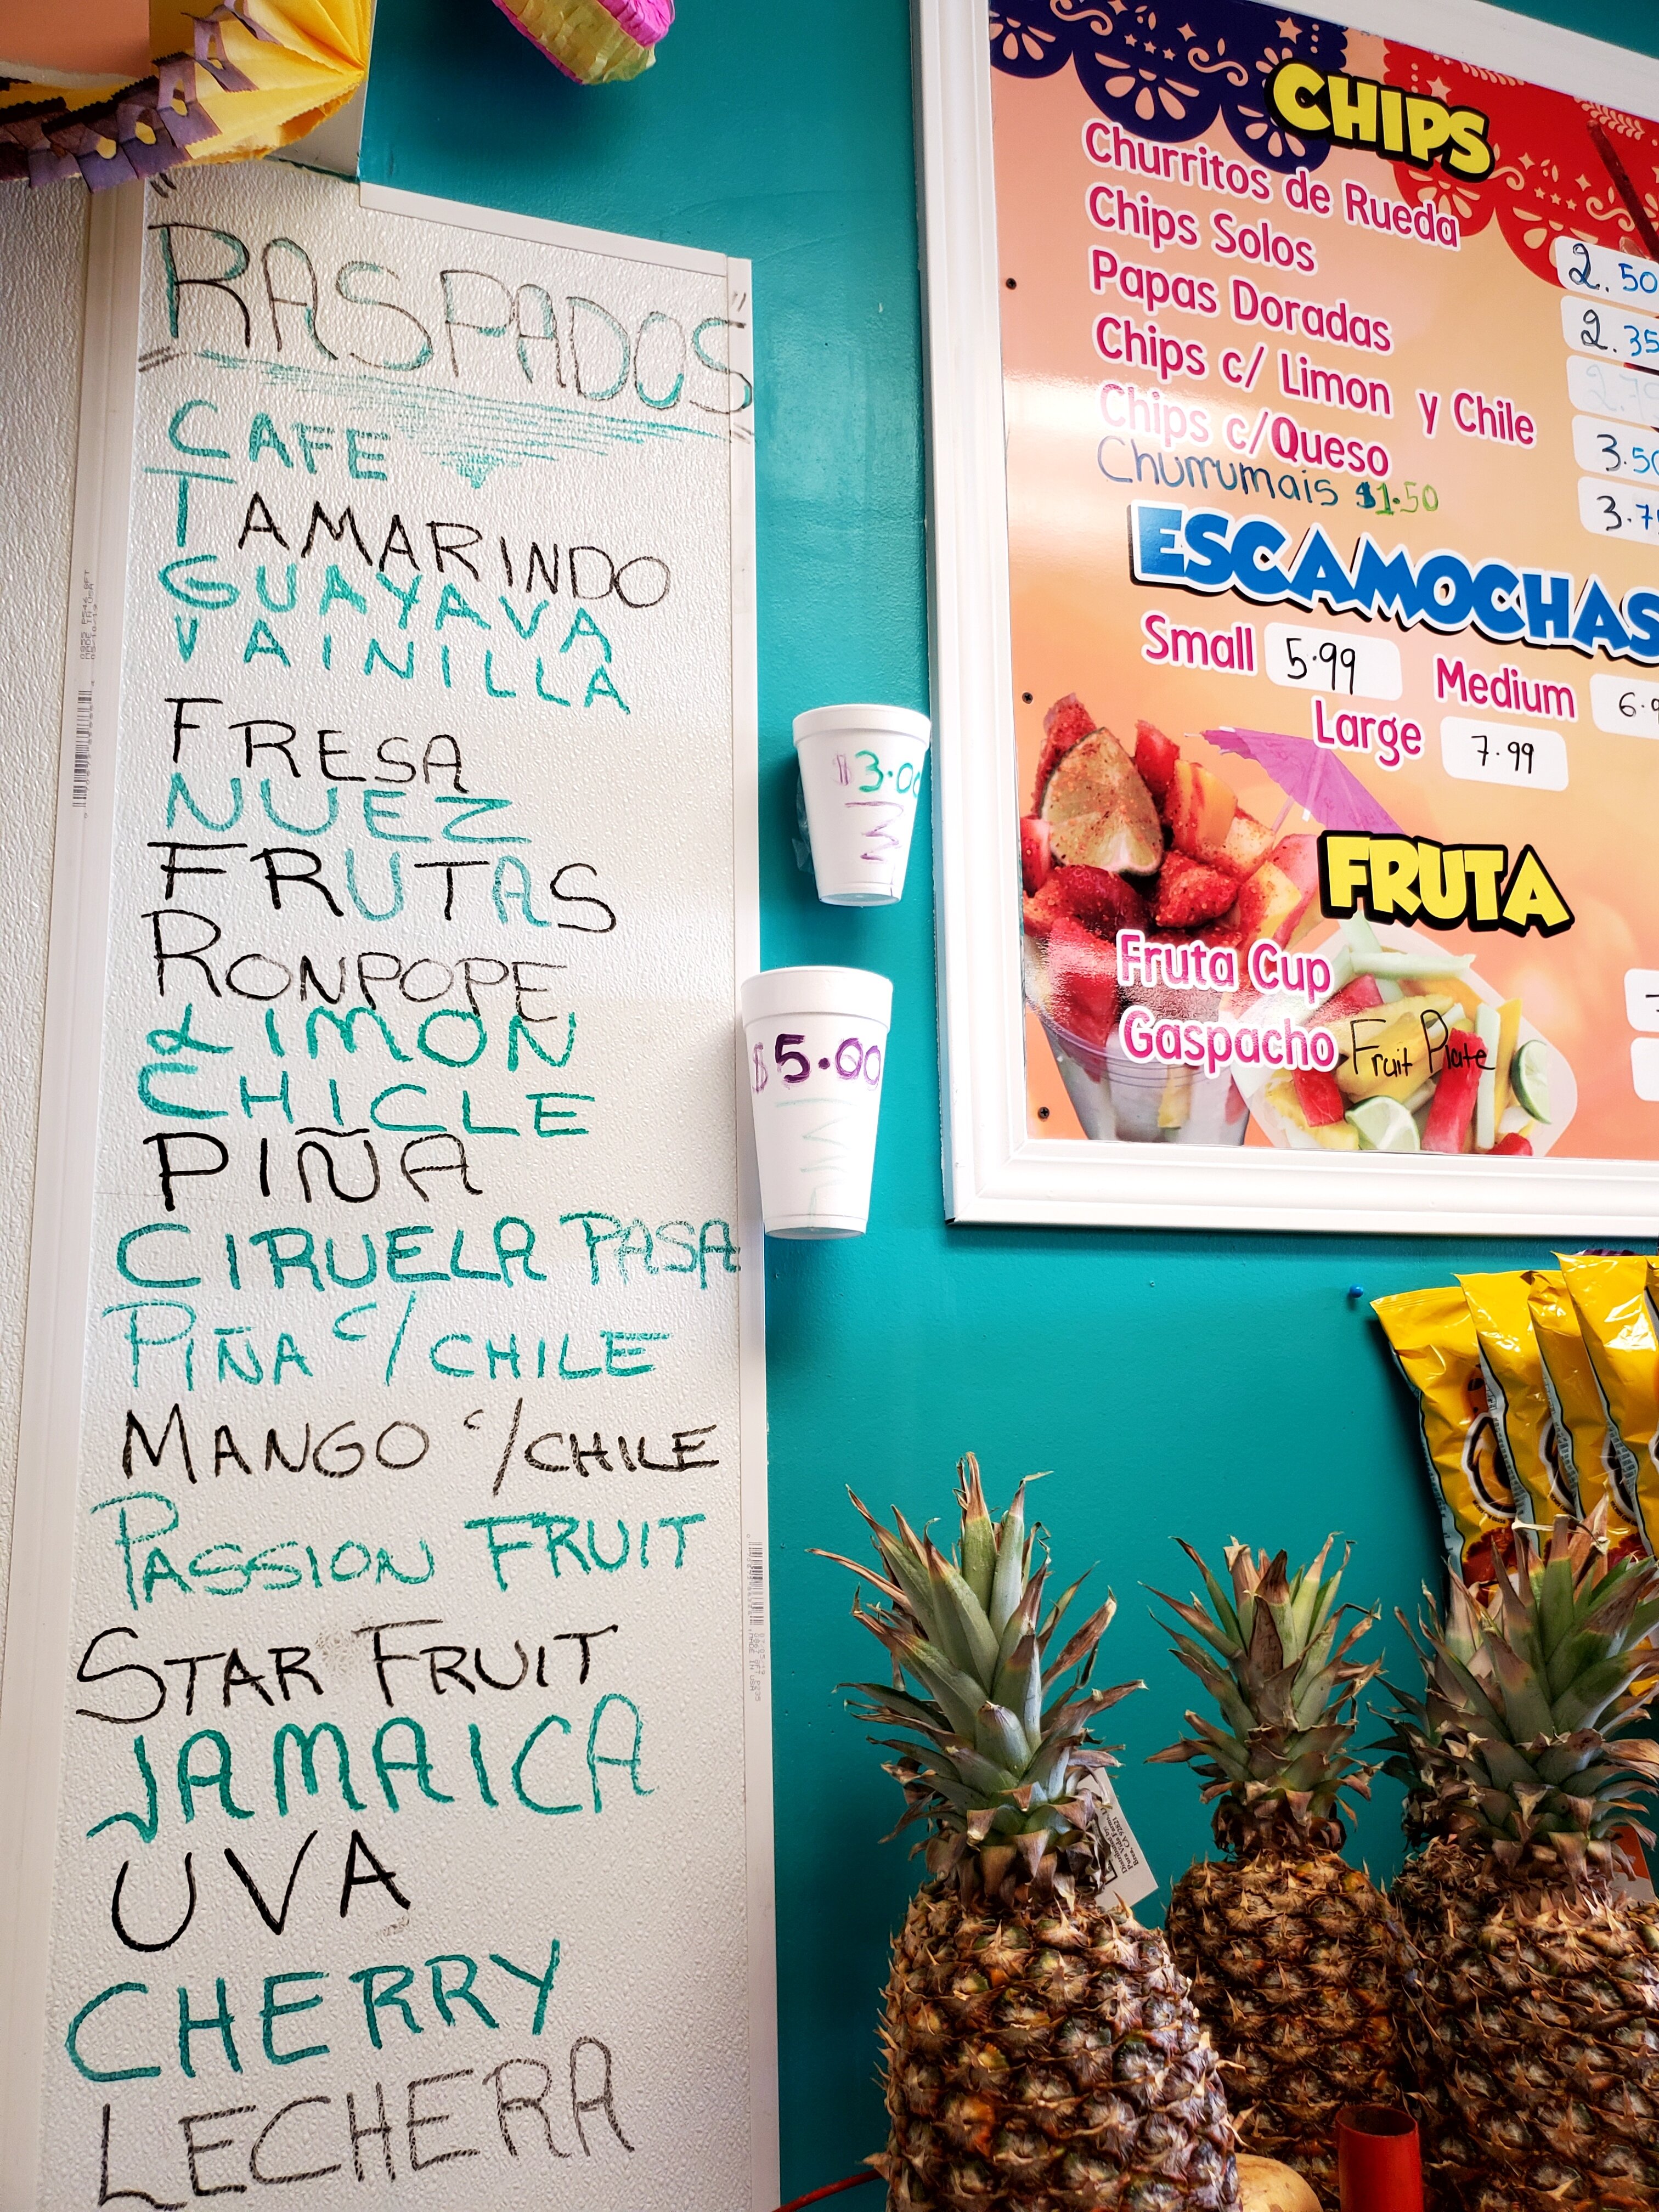 RASPADOS
CAFE
TAMARINDO
GUAYAVA
VAINILLA
FRESA
NUEZ
FRUTAS
RONPOPE
LIMON
CHICLE
PIÑA
CIRUELA PASA
PIÑA c/ CHILE
MANGO c/CHILE
PASSION FRUIT
STAR FRUIT
JAMAICA
UVA
CHERRY
LECHERA
$3.00
$5.00
CHIPS
Churritos de Rueda 2.50
Chips Solos 2.35
Papas Doradas
Chips c/ Limon y Chile 3.50
Chips c/Queso
Churrumais $1.50
ESCAMOCHAS
Small 5.99 Medium
Large 7.99
FRUTA
Fruta Cup
Gaspacho Fruit Plate